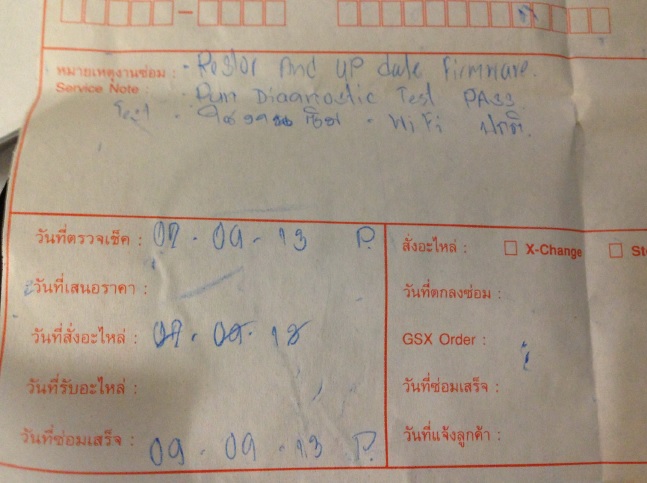 หมายเหตุงานซ่อม : - Restor And UP date Firmware.
Service Note : - Run Diagnostic Test PASS
Test - - WiFi ปกติ.
วันที่ตรวจเช็ค : 07 - 09 - 13 P.
วันที่เสนอราคา :
วันที่สั่งอะไหล่ :
วันที่รับอะไหล่ :
วันที่ซ่อมเสร็จ : 09 - 09 - 13 P.
สั่งอะไหล่ : X-Change
วันที่ตกลงซ่อม :
GSX Order :
วันที่ซ่อมเสร็จ :
วันที่แจ้งลูกค้า :